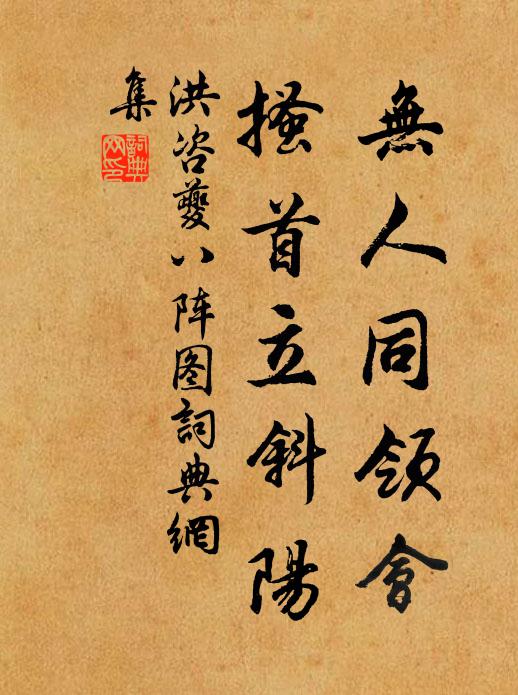 無人同領會
搔首立斜陽
洪咨夔八阵图詞典網
集
詞典
网印